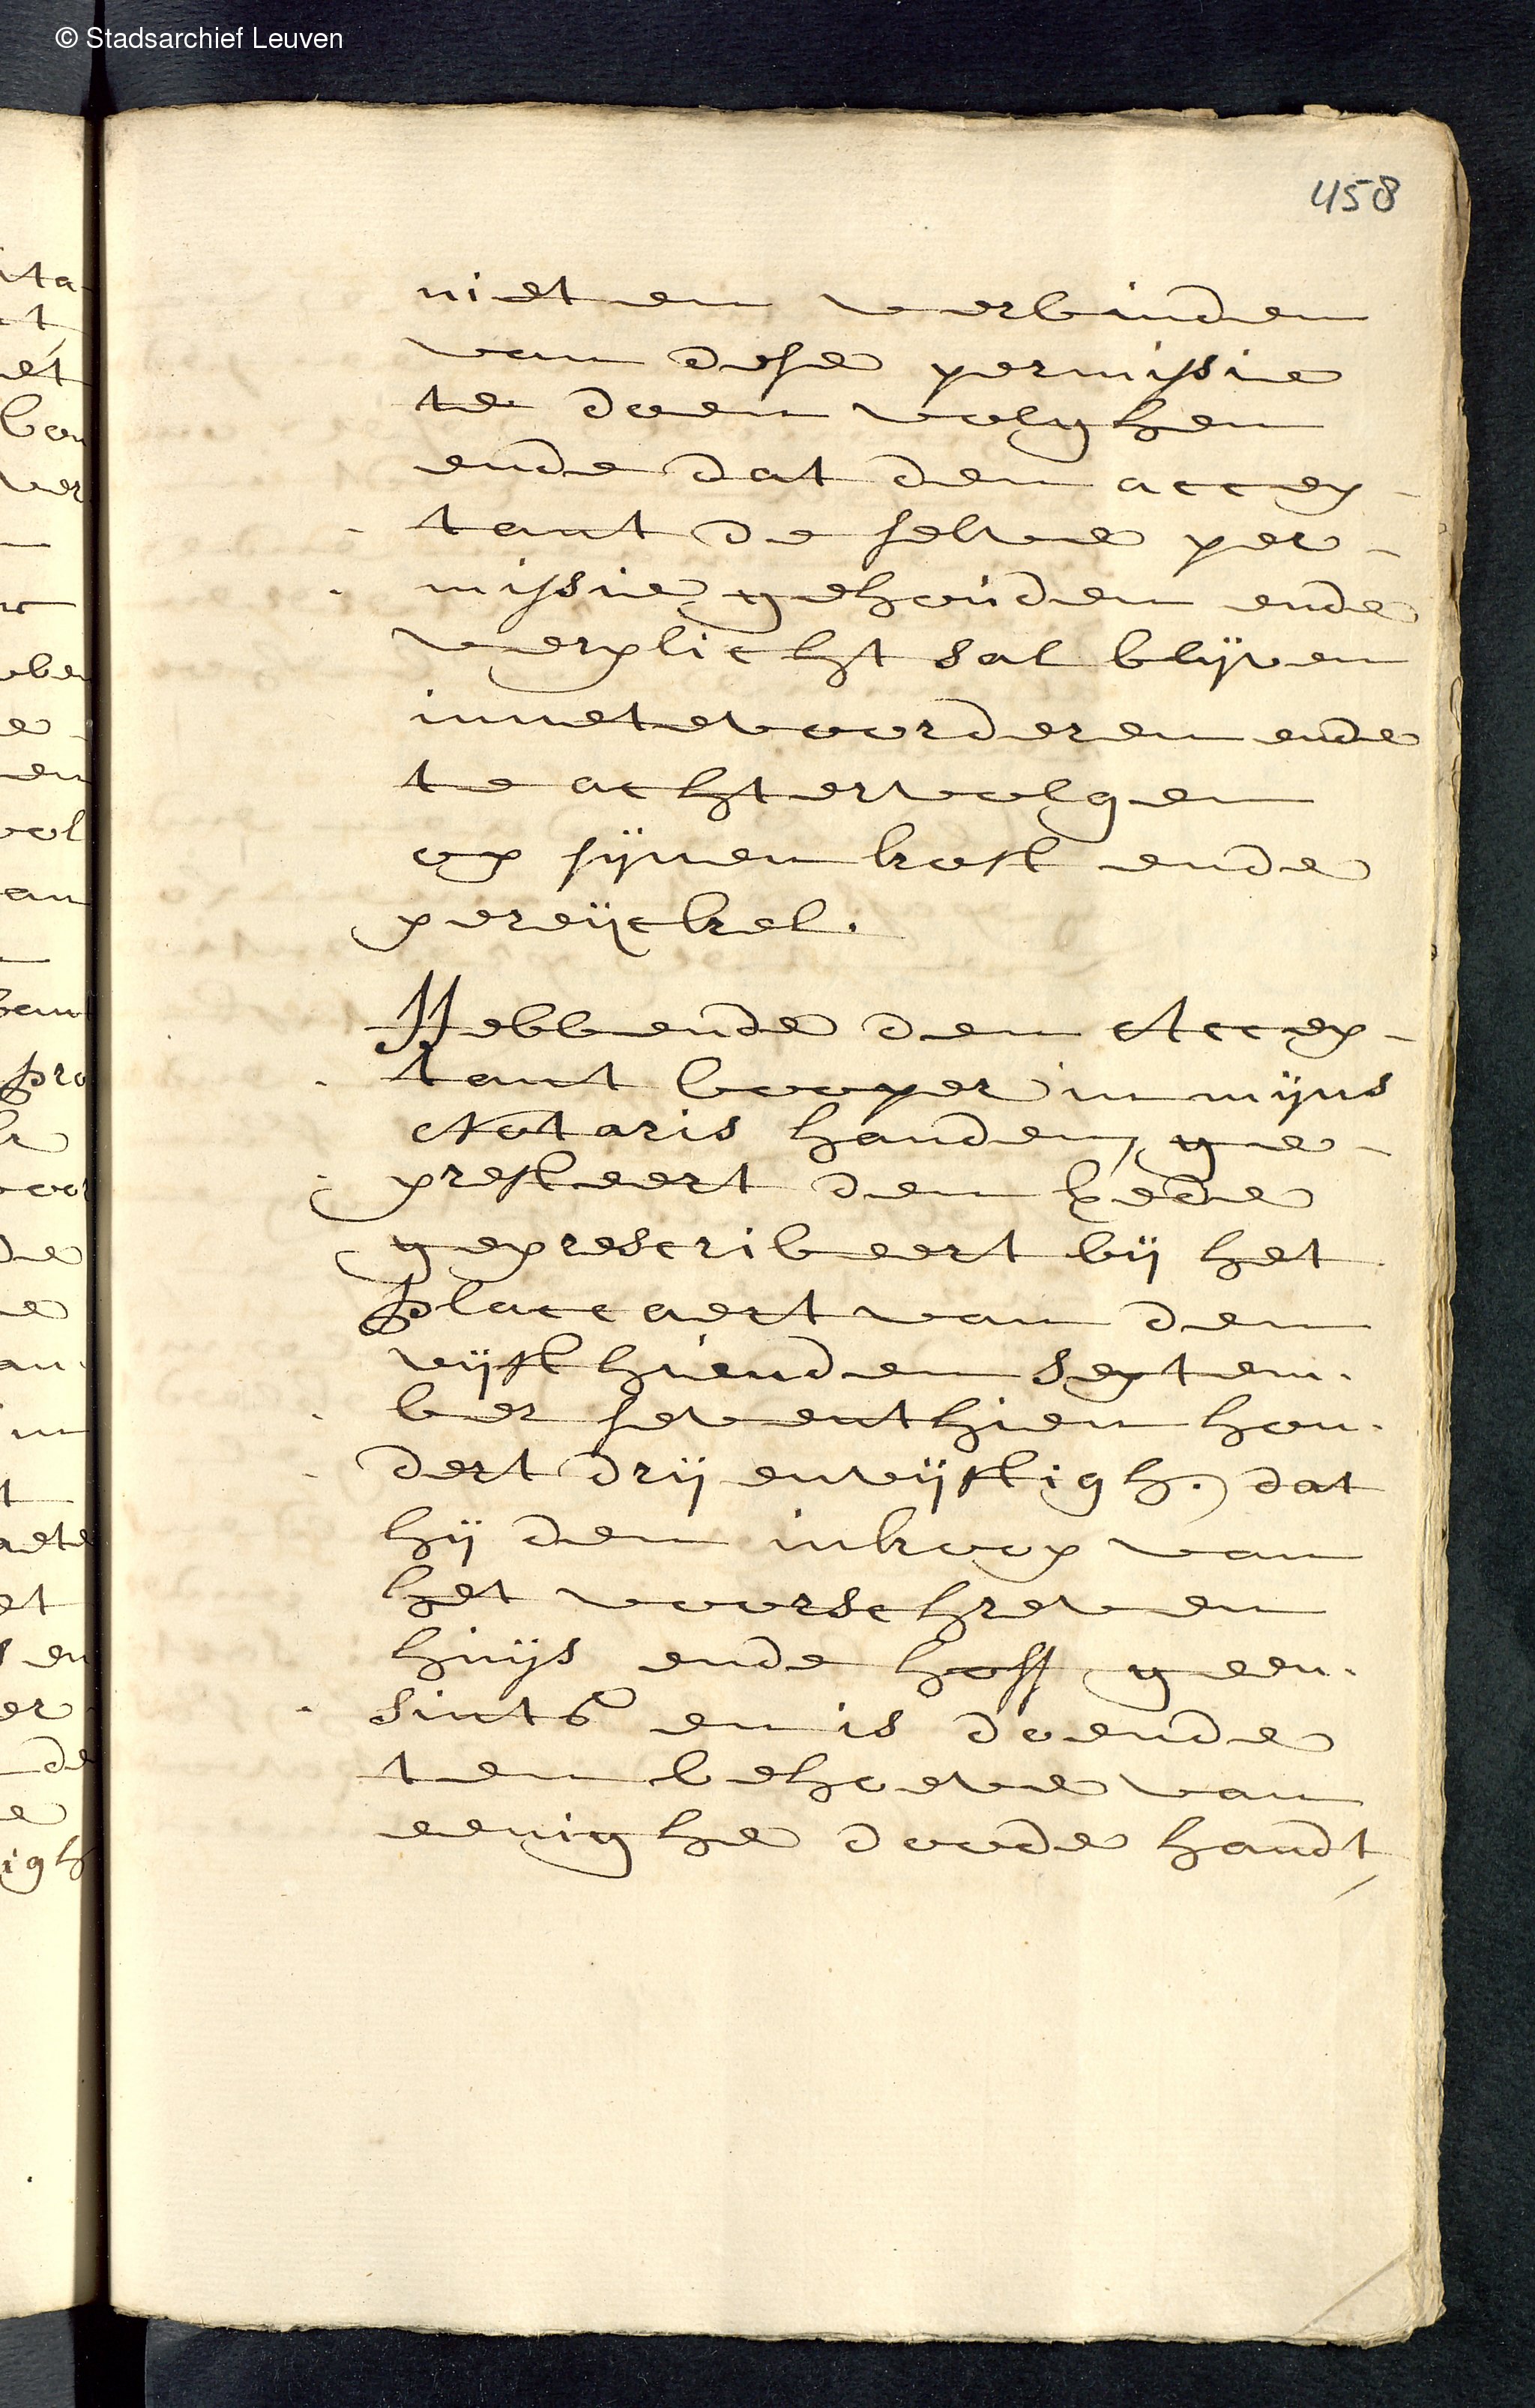 © Stadsarchief Leuven
458
niet en verbinden
van dese permissie
te doen volghen
ende dat den accep-
tant de selve per-
missie gehouden ende
verplicht sal blijven
inne te voorderen ende
te achtervolgen
op sijnen kost ende
pereijckel.
Hebbende den Accep-
tant cooper in mijns
Notaris handen ge-
presteert den eede
geprescribeert bij het
placcaert van den
vijfthienden septem-
ber seventhien hon-
dert drij envijftigh. dat
hij den inkoop van
het voorschreven
huijs ende hoff geen-
sints en is doende
ten behoeve van
eenighe doode handt